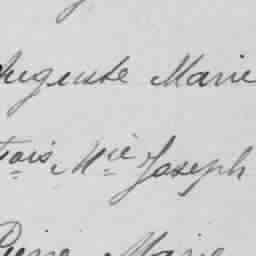 Auguste Marie
Fçois Mie Joseph
Pierre Marie